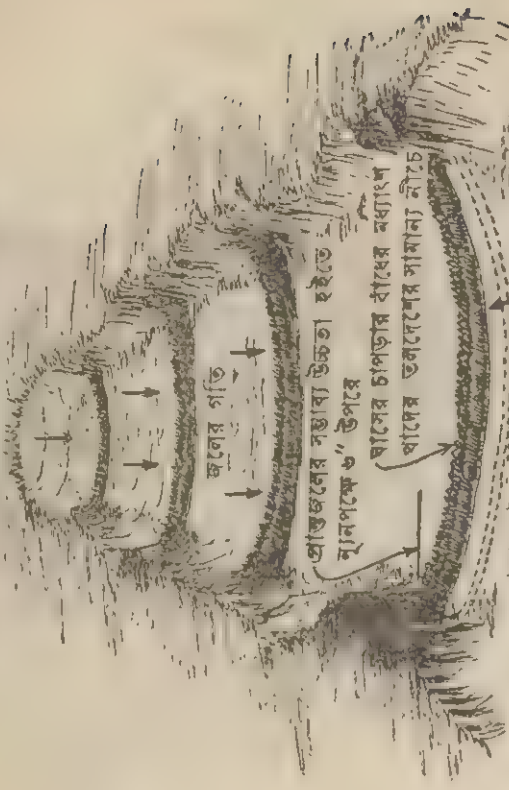 জলের গতি
প্রান্তজলের সম্ভাব্য উচ্চতা হইতে
ন্যূনপক্ষে ৬" উপরে
ঘাসের চাপড়ার বাঁধের মধ্যাংশ
খাদের তলদেশের সামান্য নীচে